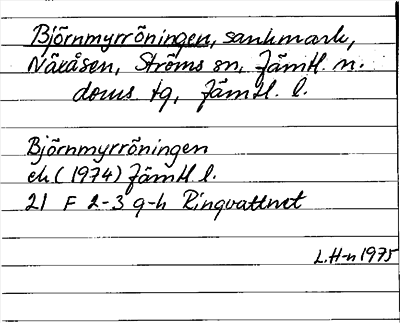 Björnmyrröningen, sankmark,
Näxåsen, Ströms sn, Jämtl. n.
doms tg, Jämtl. l.
Björnmyrröningen
ek (1974) Jämtl. l.
21 F 2-3 g-h Ringvattnet
L. H-n 1975